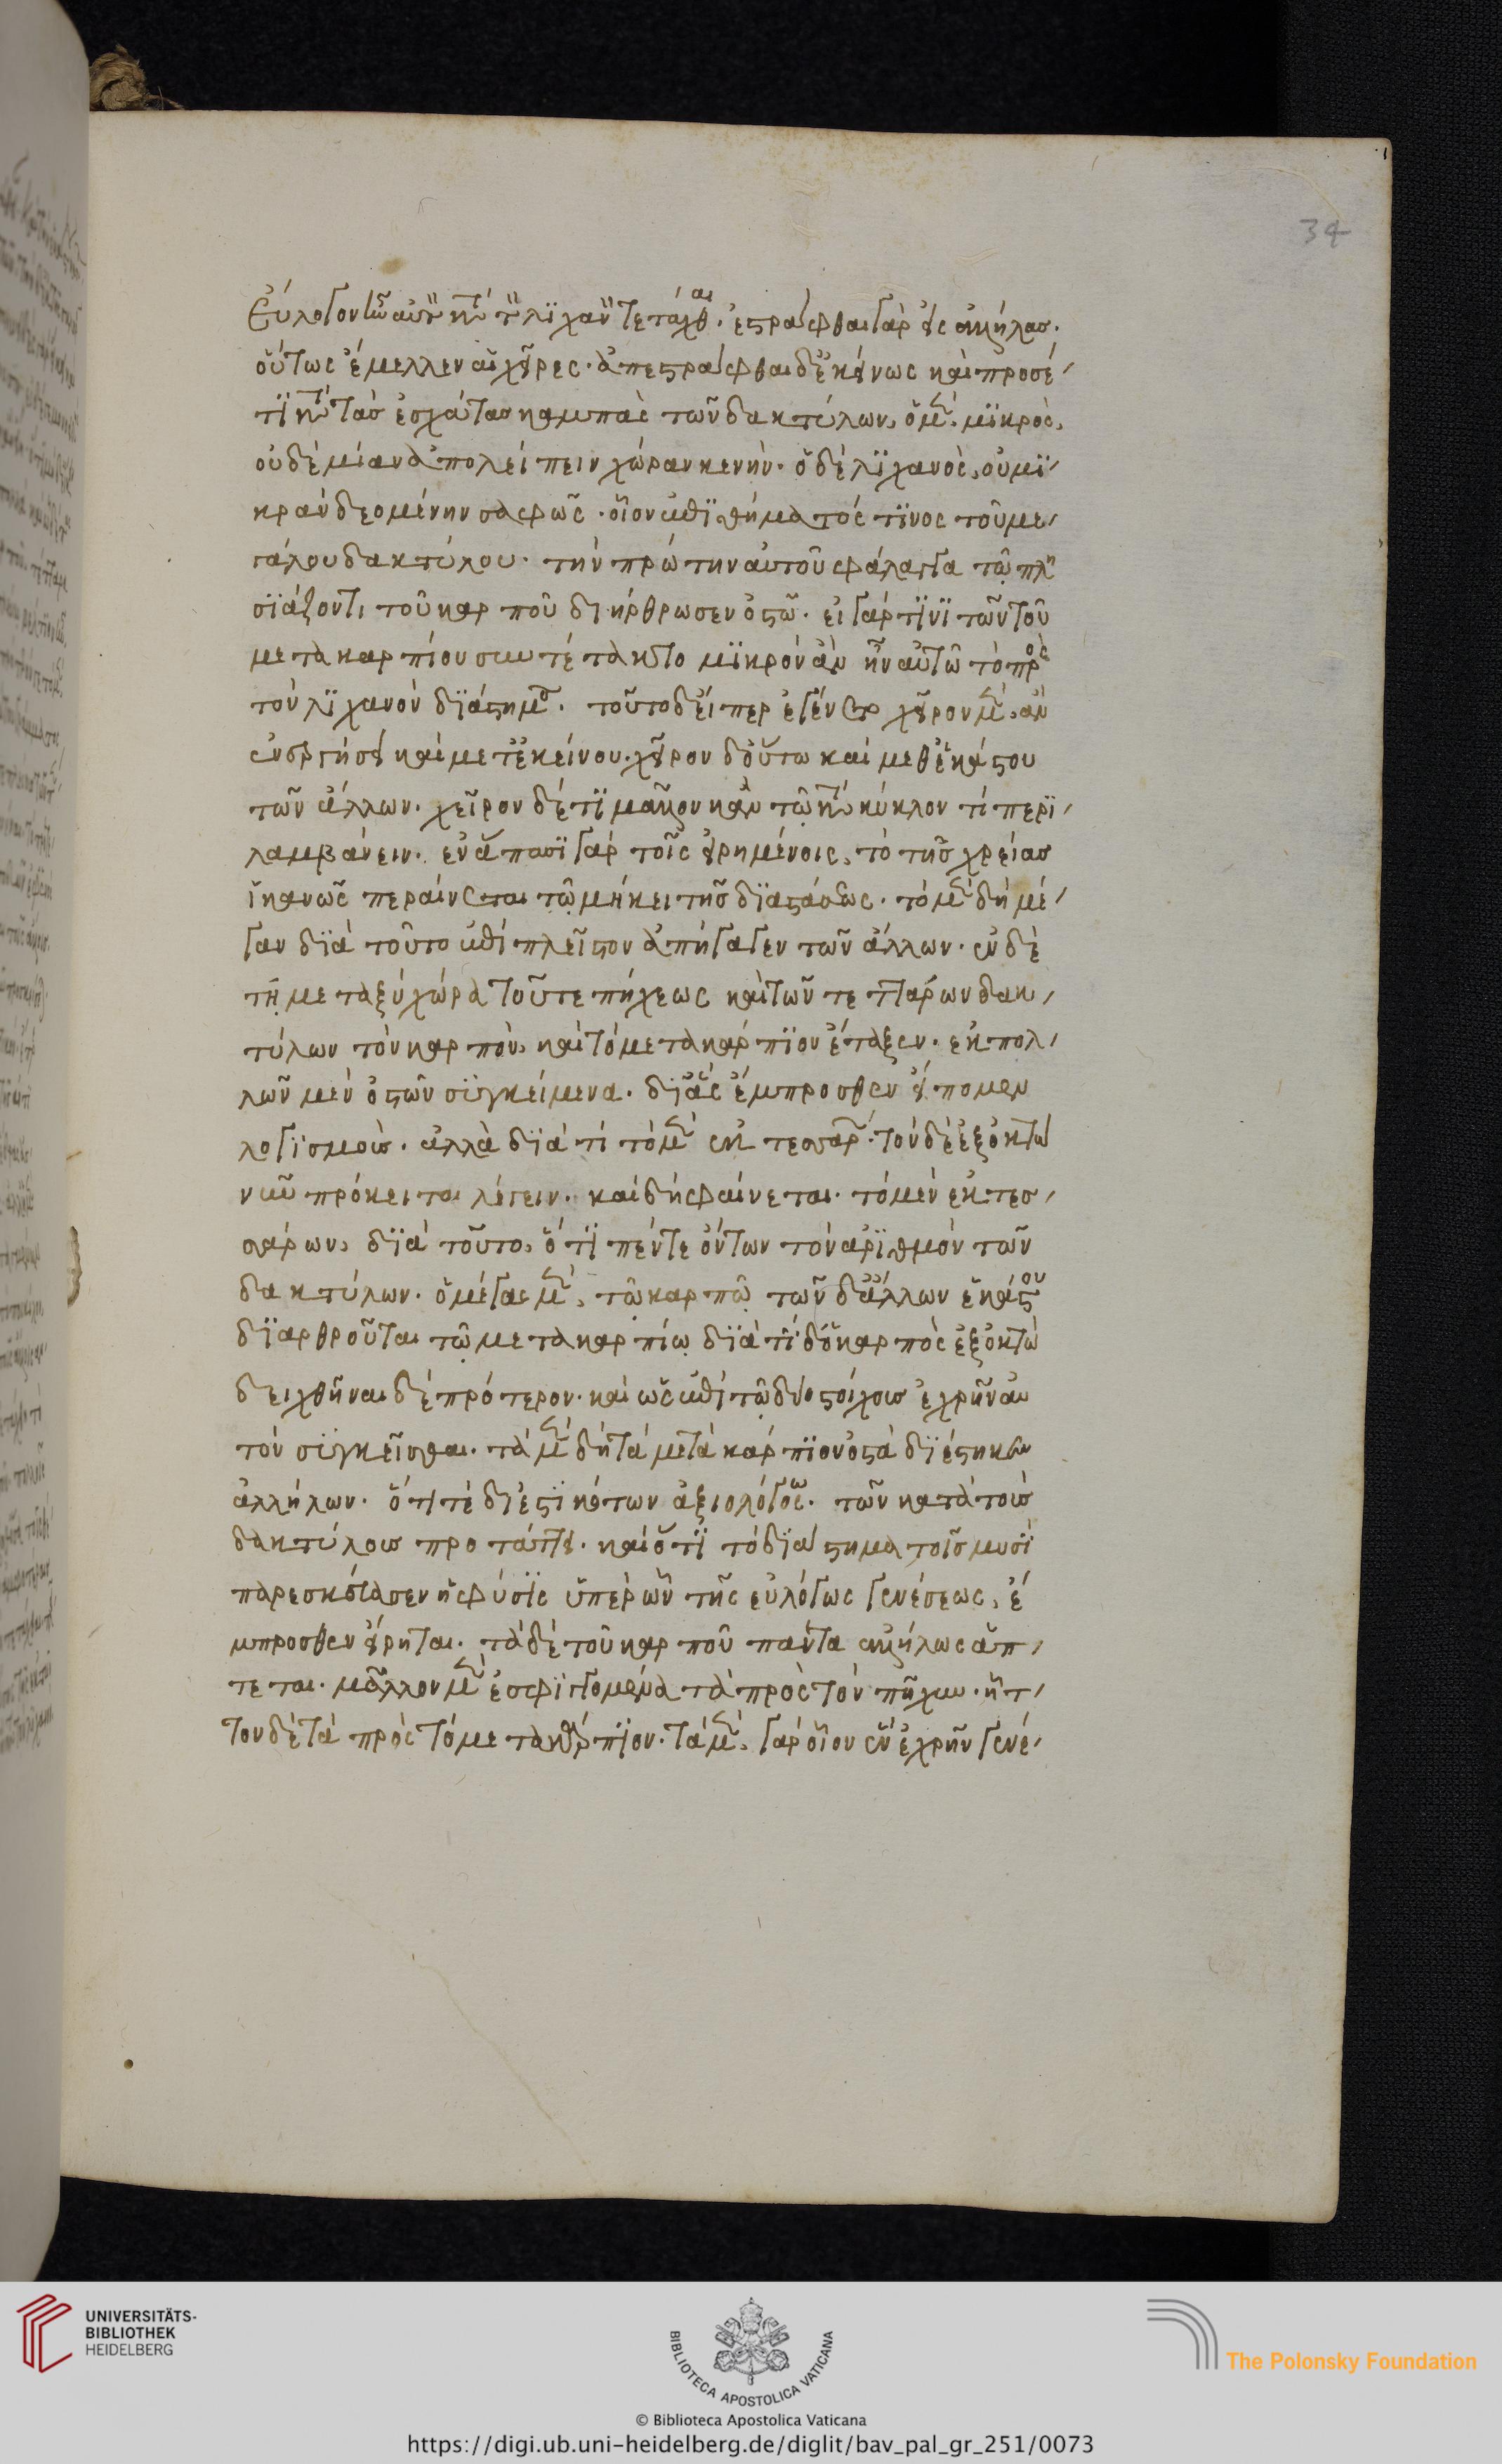 34
Εὔλογον ἦν αὐτὸν κατὰ τὸν λιχανὸν τετάχθαι. ἐστράφθαι γὰρ εἰς ἀλλήλας.
οὕτως ἔμελλεν αἱ χεῖρες. ἀπεστράφθαι δ' ἐκείνως καὶ προσέ
τι κατὰ τὰς ἐσχάτας καμπὰς τῶν δακτύλων, ὁ μὲν μικρὸς,
οὐδεμίαν ἀπολείπειν χώραν κενὴν. ὁ δὲ λιχανὸς, οὐ μι
κρὰν δεομένην σαφῶς. οἷον ἐπιθήματός τινος τοῦ με
γάλου δακτύλου. τὴν πρώτην αὐτοῦ φάλαγγα τῷ πλη
σιάζοντι τοῦ καρποῦ διήρθρωσεν ὀστῷ. εἰ γάρ τινι τῶν τοῦ
μετακαρπίου συνετέτακτο μικρὸν ἂν ἦν αὐτῶ τὸ πρὸς
τὸν λιχανὸν διάστημα. τοῦτο δ' εἴπερ ἐγένετο χεῖρον μὲν ἂν
ἐνήργησε καὶ μετ' ἐκείνου. χεῖρον δ' οὕτω καὶ μεθ' ἑκάστου
τῶν ἄλλων. χεῖρον δέ τι μᾶλλον κἀν τῷ κατὰ κύκλον τί περι
λαμβάνειν. ἐν ἅπασι γὰρ τοῖς εἰρημένοις, τὸ τῆς χρείας
ἱκανῶς περαίνεται τῷ μήκει τῆς διαστάσεως. τὸ μὲν δὴ μέ
γαν διὰ τοῦτο ἐπὶ πλεῖστον ἀπήγαγεν τῶν ἄλλων. ἐν δὲ
τῇ μεταξὺ χώρα τοῦτε πήχεως καὶ τῶν τεττάρων δακ
τύλων τὸν καρπὸν, καὶ τὸ μετακάρπιον ἔταξεν. ἐκ πολ
λῶν μὲν ὀστῶν συγκείμενα. δι' ἃς ἔμπροσθεν εἴπομεν
λογισμοὺς. ἀλλὰ διὰ τί τὸ μὲν ἐκ τεσσάρων. τὸν δὲ ἐξ ὀκτὼ
νῦν πρόκειται λέγειν. καὶ δὴ φαίνεται. τὸ μὲν ἐκ τεσ
σάρων, διὰ τοῦτο, ὅτι πέντε ὄντων τὸν ἀριθμὸν τῶν
δακτύλων. ὁ μέγας μὲν, τῷ καρπῷ τῶν δ' ἄλλων ἕκαστου
διαρθροῦται τῷ μετακαρπίῳ διὰ τί δ' ὁ καρπὸς ἐξ ὀκτὼ
δειχθῆναι δὲ πρότερον. καὶ ὡς ἐπὶ τῷ δύο στοίχους ἐχρῆν αὐ
τὸν συγκεῖσθαι. τὰ μὲν δὴ τὰ μετὰ κάρπιον ὀστὰ διέστηκεν
ἀλλήλων. ὅτι τὲ διεστικότων ἀξιολόγως. τῶν κατὰ τοὺς
δακτύλους προτάττει. καὶ ὅτι τὸ διάστημα τοῖς μυσὶ
παρεσκεύασεν ἡ φύσις ὑπὲρ ὧν τῆς εὐλόγως γενέσεως, ἔ
μπροσθεν εἴρηται. τὰ δὲ τοῦ καρποῦ πάντα ἀλλήλως ἅπ
τεται. μᾶλλον μὲν ἐσφιγγομένα τὰ πρὸς τὸν πῆχυν. ἧτ
τον δὲ τὰ πρὸς τὸ μετακάρπιον. τὰ μὲν, γὰρ οἷον ἓν ἐχρῆν γενέ
UNIVERSITÄTS-
BIBLIOTHEK
HEIDELBERG
BIBLIOTECA APOSTOLICA VATICANA
The Polonsky Foundation
© Biblioteca Apostolica Vaticana
https://digi.ub.uni-heidelberg.de/diglit/bav_pal_gr_251/0073